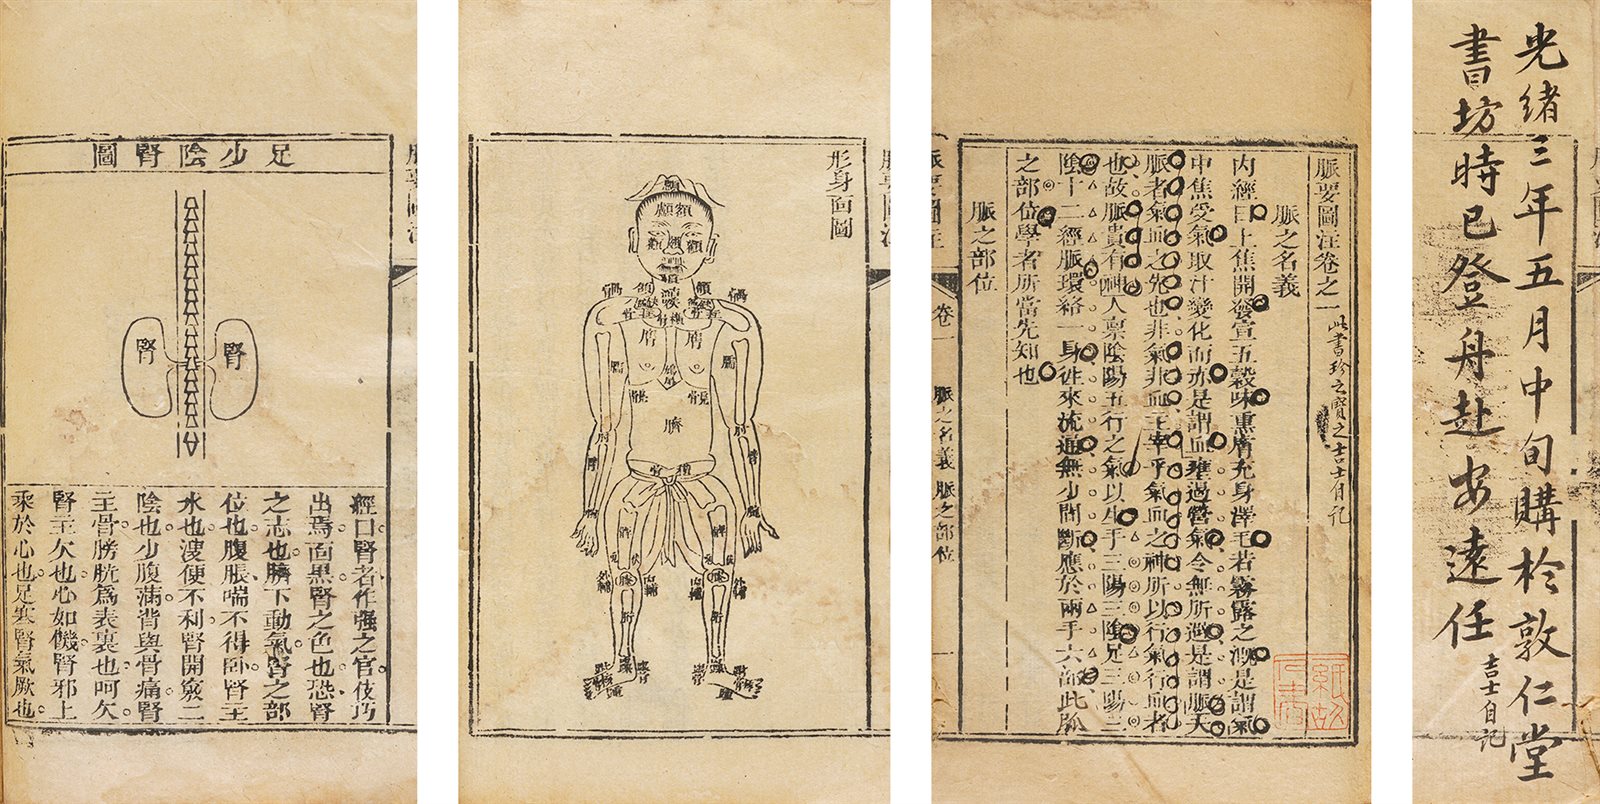 足少陰腎圖
腎
腎
經曰腎者作强之官伎巧
出焉面黑腎之色也恐腎
之志也臍下動氣腎之部
位也腹脹喘不得卧腎主
水也溲便不利腎開竅二
陰也少腹滿背與骨痛腎
主骨膀胱爲表裏也呵欠
腎主欠也心如饑腎邪上
乘於心也足寒腎氣厥也
形身面圖
額
顱
頄
膺
膺
臑
臑
臍
肘
肘
臂
臂
橫骨
髀
內輔
外輔
膝
脈要圖注卷之一
此書珍之寶之吉士自記
脈之名義
內經曰上焦開發宣五穀味熏膚充身澤毛若霧露之溉是謂氣
中焦受氣取汁變化而赤是謂血壅遏營氣令無所避是謂脈夫
脈者氣血之先也非氣非血主宰乎氣血之神所以行氣行血者
也故脈貴有神人禀陰陽五行之氣以生手三陽三陰足三陽三
陰十二經脈環絡一身往來流通無少間斷應於兩手六部此脈
之部位學者所當先知也
脈之部位
脈要圖注
卷一
脈之名義 脈之部位
一
光緒三年五月中旬購於敦仁堂
書坊時已登舟赴安遠任
吉士自記